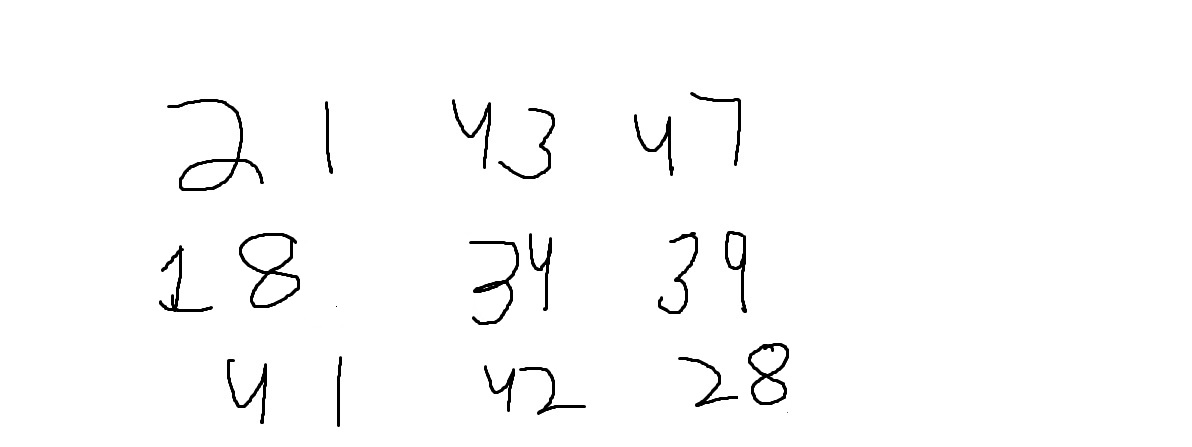 21 43 47
18 34 39
41 42 28